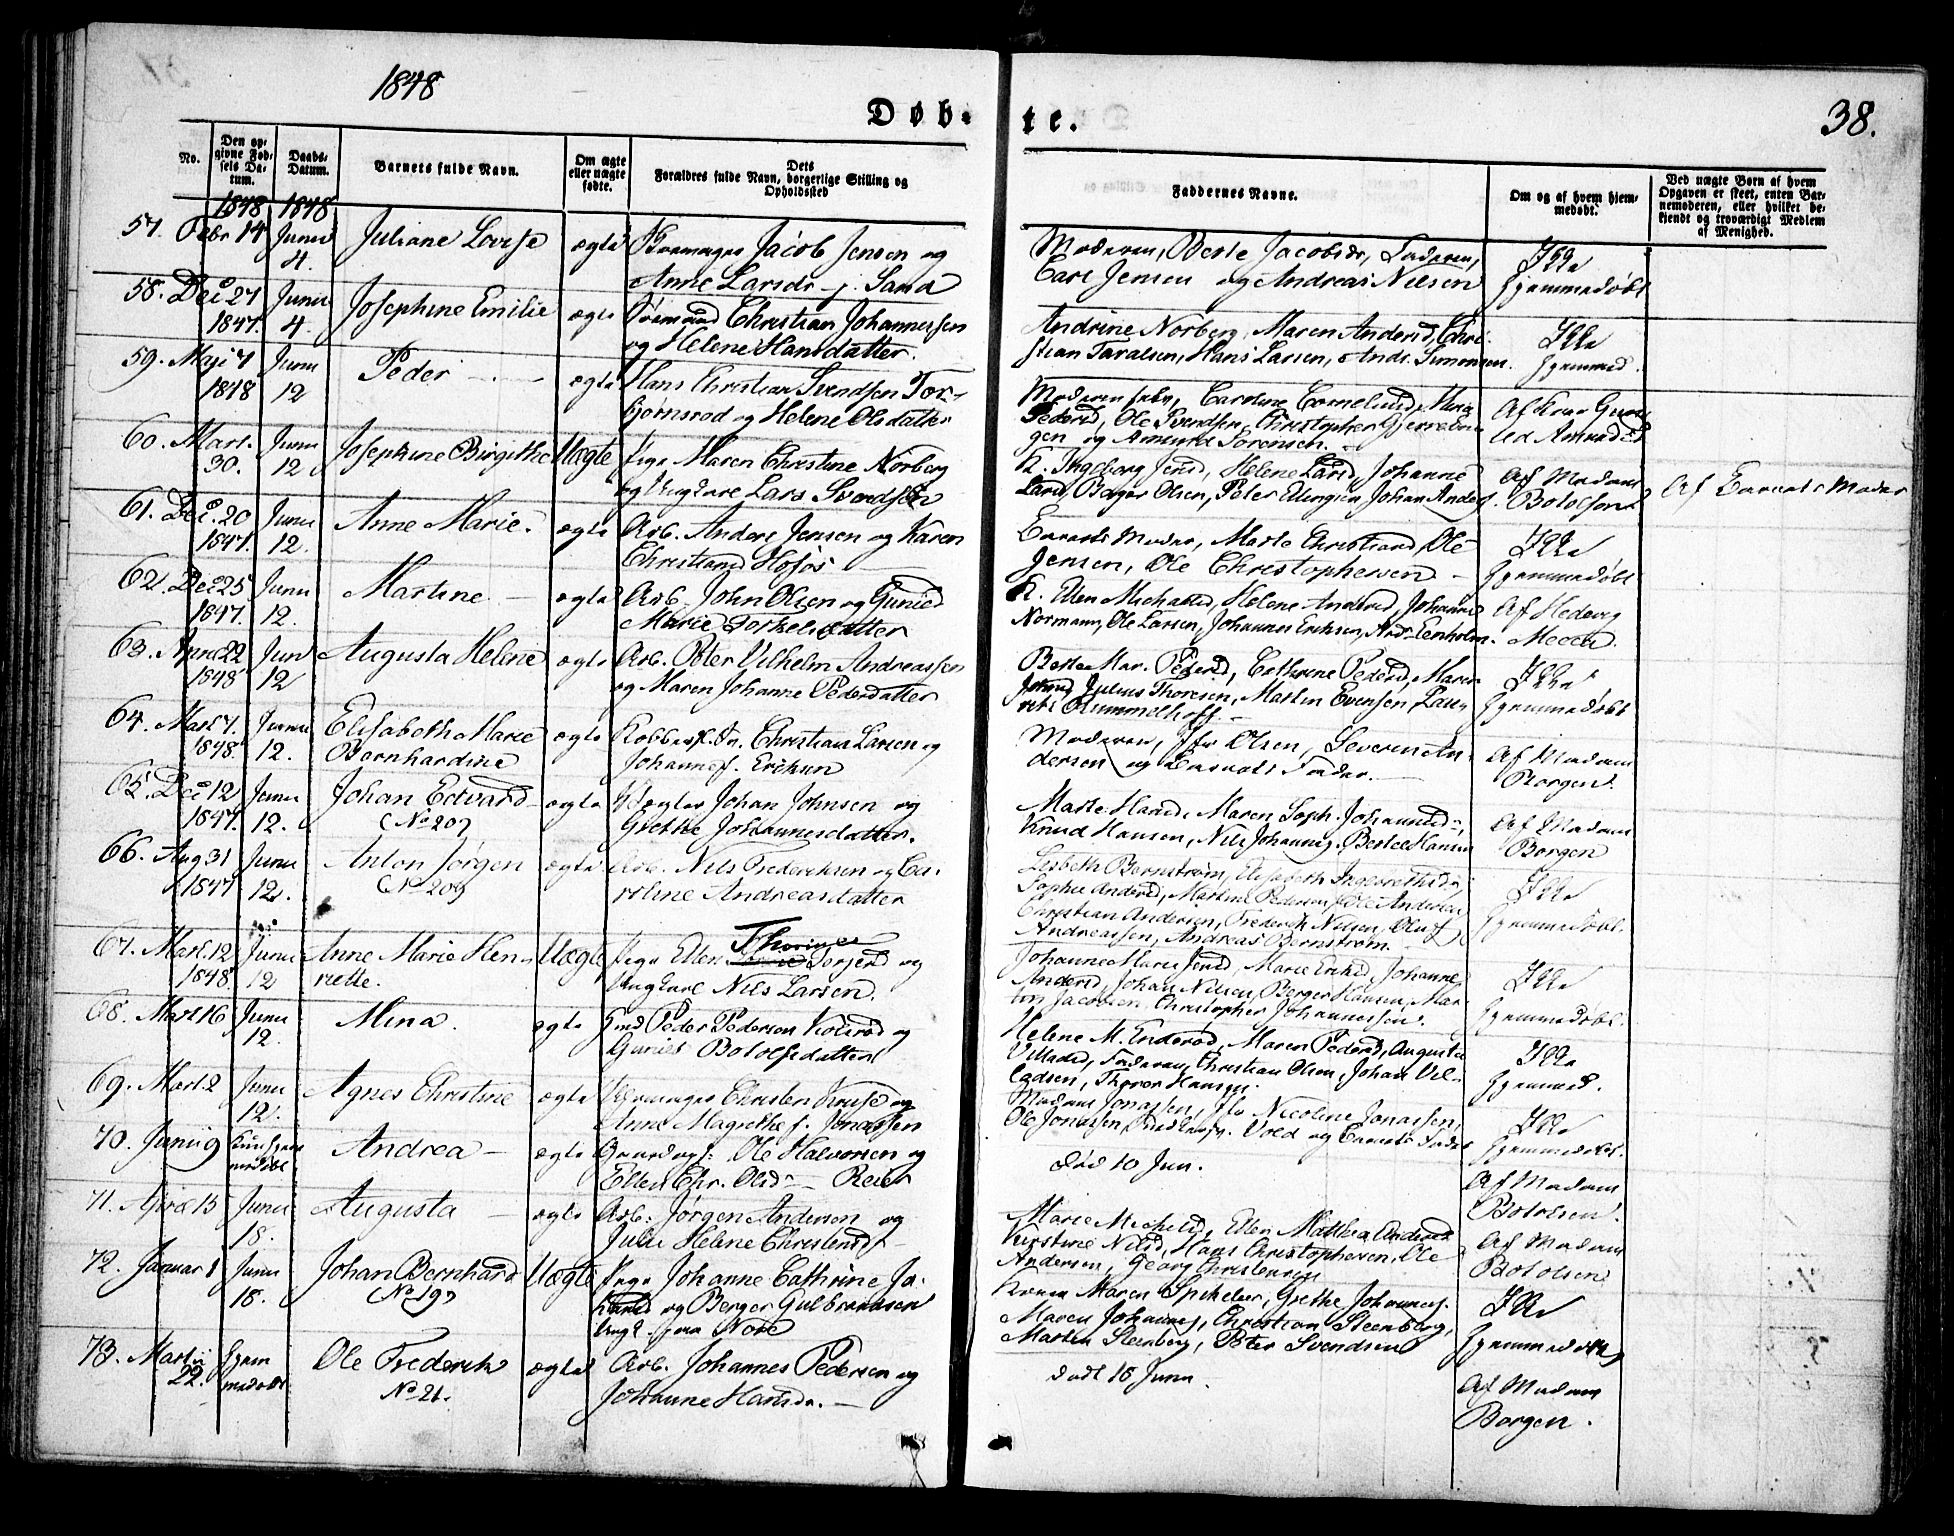 1848
Døb-
te.
38.
No.
Den op-
givne Fød-
sels Da-
tum.
Daabs-
Datum.
Barnets fulde Navn.
Om ægte
eller uægte
fødte.
Dets
Forældres fulde Navn, borgerlige Stilling og
Opholdssted
Faddernes Navne.
Om og af hvem hjem-
medøbt.
Ved uægte Børn af hvem
Opgaven er skeet, enten Bar-
nemoderen, eller hvilket be-
kjendt og troværdigt Medlem
af Menighed.
1848 1848
57. Febr 14 Junii
4.
Juliane Lovise
ægte
Jacob Jensen og
Anne Larsdr
Moderen, Berte Jacobsdr, Faderen,
Carl Jensen og Andreas Nielsen
Ikke
hjemmedøbt
58. Dec 27
1847.
Junii
4.
Josephine Emilie
ægte
Sømand Christian Johannessen
og Helene Hansdatter.
Andrine Norberg, Maren Andersd, Chri-
stian Taralsen, Hans Larsen, Andr. Simonsen.
Ikke
hjemmed.
59. Maji 7
1848
Junii
12
Peder
ægte
Hans Christian Svendsen Tor-
bjørnsrød og Helene Olsdatter
Moderen selv, Caroline Cornelius,
Pedersd, Ole Svendsen, Christopher
gen og Amund Sørensen.
60. Mart.
30.
Junii
12
Josephine Birgithe
Uægte
Pige Maren Christine Norberg
og Ungkarl Lars Svendsen
K. Ingeborg Jensd, Helene Larsd, Johanne
Larsd, Børger Olsen, Peter Johan Anders.
Af Madam
Botolfsen
Af Barnets Moder
61. Dec. 20
1847.
Junii
12.
Anne Marie.
ægte
Arb. Anders Jensen og Karen
Christiansd Hofos
Barnets Moder, Marte Christiansd, Ole
Jensen, Ole Christophersen
Ikke
hjemmedøbt
62. Dec 25
1847.
Junii
12.
Martine
ægte
Arb. John Olsen og Gunild
Marie Torkelsdatter
K. Ellen Michaelsd, Helene Andersd, Johannes
Normann, Ole Larsen, Johannes Eriksen, Andr. Eenholm.
Af Hedevig
63. April 22
1848
Juni
12
Augusta Helene
ægte
Arb. Peter Vilhelm Andreassen
og Maren Johanne Pedersdatter
Berte Mar. Pedersd, Cathrine Pedersd, Maren
Johnsd, Julius Thoresen, Martin Evensen, Lau-
rits Rummelhoff.
Ikke
hjemmedøbt
64. Mart 7.
1848.
Junii
12.
Elisabeth Marie
Bernhardine
ægte
Christian Larsen og
Johanne f. Eriksen
Moderen, Jfr Olsen, Severin An-
dersen og Barnets Fader.
Af Madam
Borgen.
65. Dec 12
1847.
Junii
12.
Johan Edvard
(No 20)
ægte
Johan Johnsen og
Grethe Johannesdatter.
Marte Hansd, Maren Soph. Johannesd,
Knud Hansen, Nils Johannes., Hansen
Af Madam
Borgen
66. Aug 31
1847
Junii
12.
Anton Jørgen
(No 20)
ægte
Arb. Nils Frederiksen og Ca-
roline Andreasdatter
Lisbeth Bernstrøm, Elisabeth Ingebrethsd,
Sophie Andersd, Martine Pedersen, Ole Andersen
Christian Andersen, Frederik Nilsen, Oluf
Andreassen, Andreas Bernstrøm.
Ikke
hjemmedøbt.
67. Mart. 12
1848.
Junii
12
Anne Marie Hen-
riette.
Uægte
Pige Ellen Thorine Torjersd og
Ungkarl Nils Larsen.
Johanne Marie Jensd, Marie Eriksd, Johanne
Andersd, Johan Nilsen, Børger Hansen, Mar-
tin Jacobsen, Christopher Johannessen.
Ikke
hjemmedøbt.
68. Mart 16
Junii
12.
Mina.
ægte
Gmd Peder Pedersen Kolsrød og
Gunild Botolfsdatter
Helene M. Enderød, Maren Pedersd, Augusta
Villadsd, Faderen, Christian Olsen, Johan Vil-
ladsen, Thorer Hansen.
Ikke
hjemmed.
69. Mart. 2
Junii
12.
Agnes Christine
ægte
Christen Kruse og
Anne Magrethe f. Jonassen
Madam Jonassen, Jfr Nicoline Jonassen,
Ole Jonassen, Vold og Barnets Fader
Ikke
hjemmedøbt.
70. Junii 9
Kun hjem
medøbt
Andrea
ægte
Ole Halvorsen og
Ellen Chr. Olsd Reier
død 10 Jun.
Af Madam
Botolfsen.
71. April 15
Junii
18.
Augusta
ægte
Arb. Jørgen Andersen og
Julie Helene Christensd
Marie Michelsd, Ellen Mathea Andersd
Kirstine Nilsd, Hans Christophersen, Ole
Andersen, Georg Christensen
Af Madam
Botolfsen
72. Januar 1
Junii
18.
Johan Bernhard
(No 19)
Uægte
Pige Johanne Cathrine Jo-
hansd og Berger Gulbrandsen
Ungk. fra
Konen Maren Spikeler, Grethe Johannes.
Maren Johannes, Christian Steenberg,
Martin Steenberg, Peter Svendsen
Ikke
hjemmedøbt
73. Martii
22.
hjem
medøbt
Ole Frederik
No 21.
ægte
Arb. Johannes Pedersen og
Johanne Hansdr.
dødt 18 Junii.
Af Madam
Borgen.